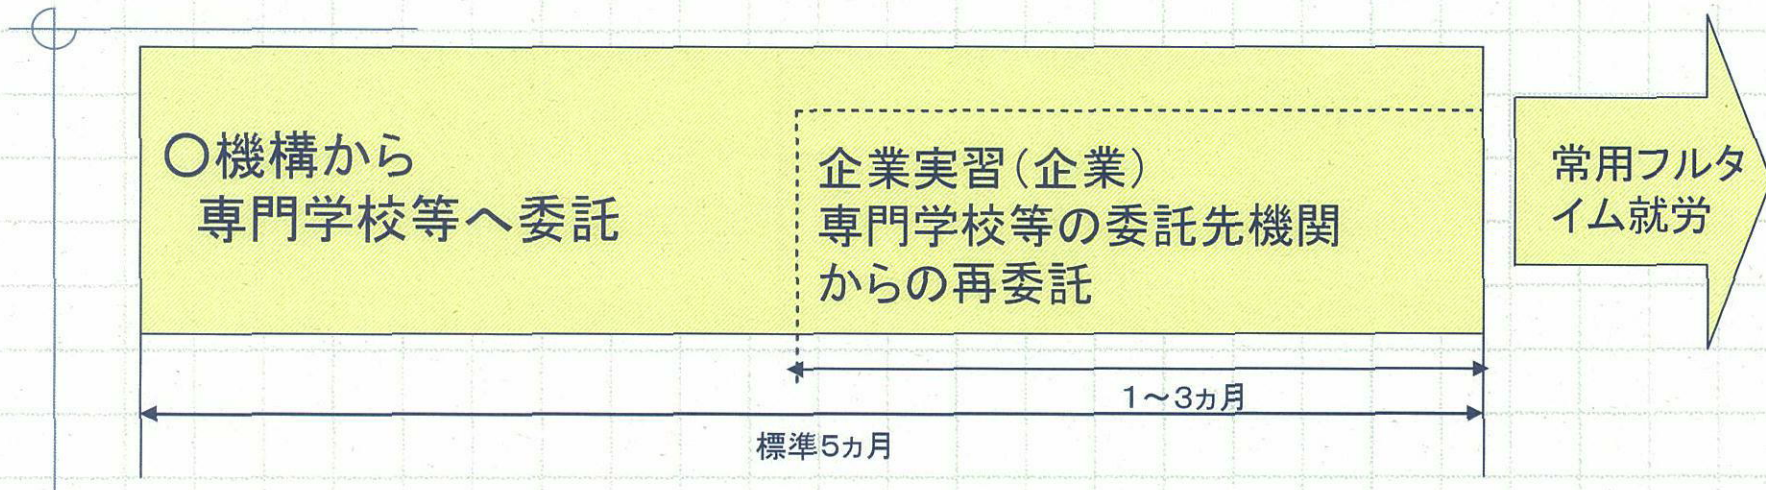 〇機構から
専門学校等へ委託
企業実習(企業)
専門学校等の委託先機関
からの再委託
常用フルタ
イム就労
1～3ヵ月
標準5ヵ月